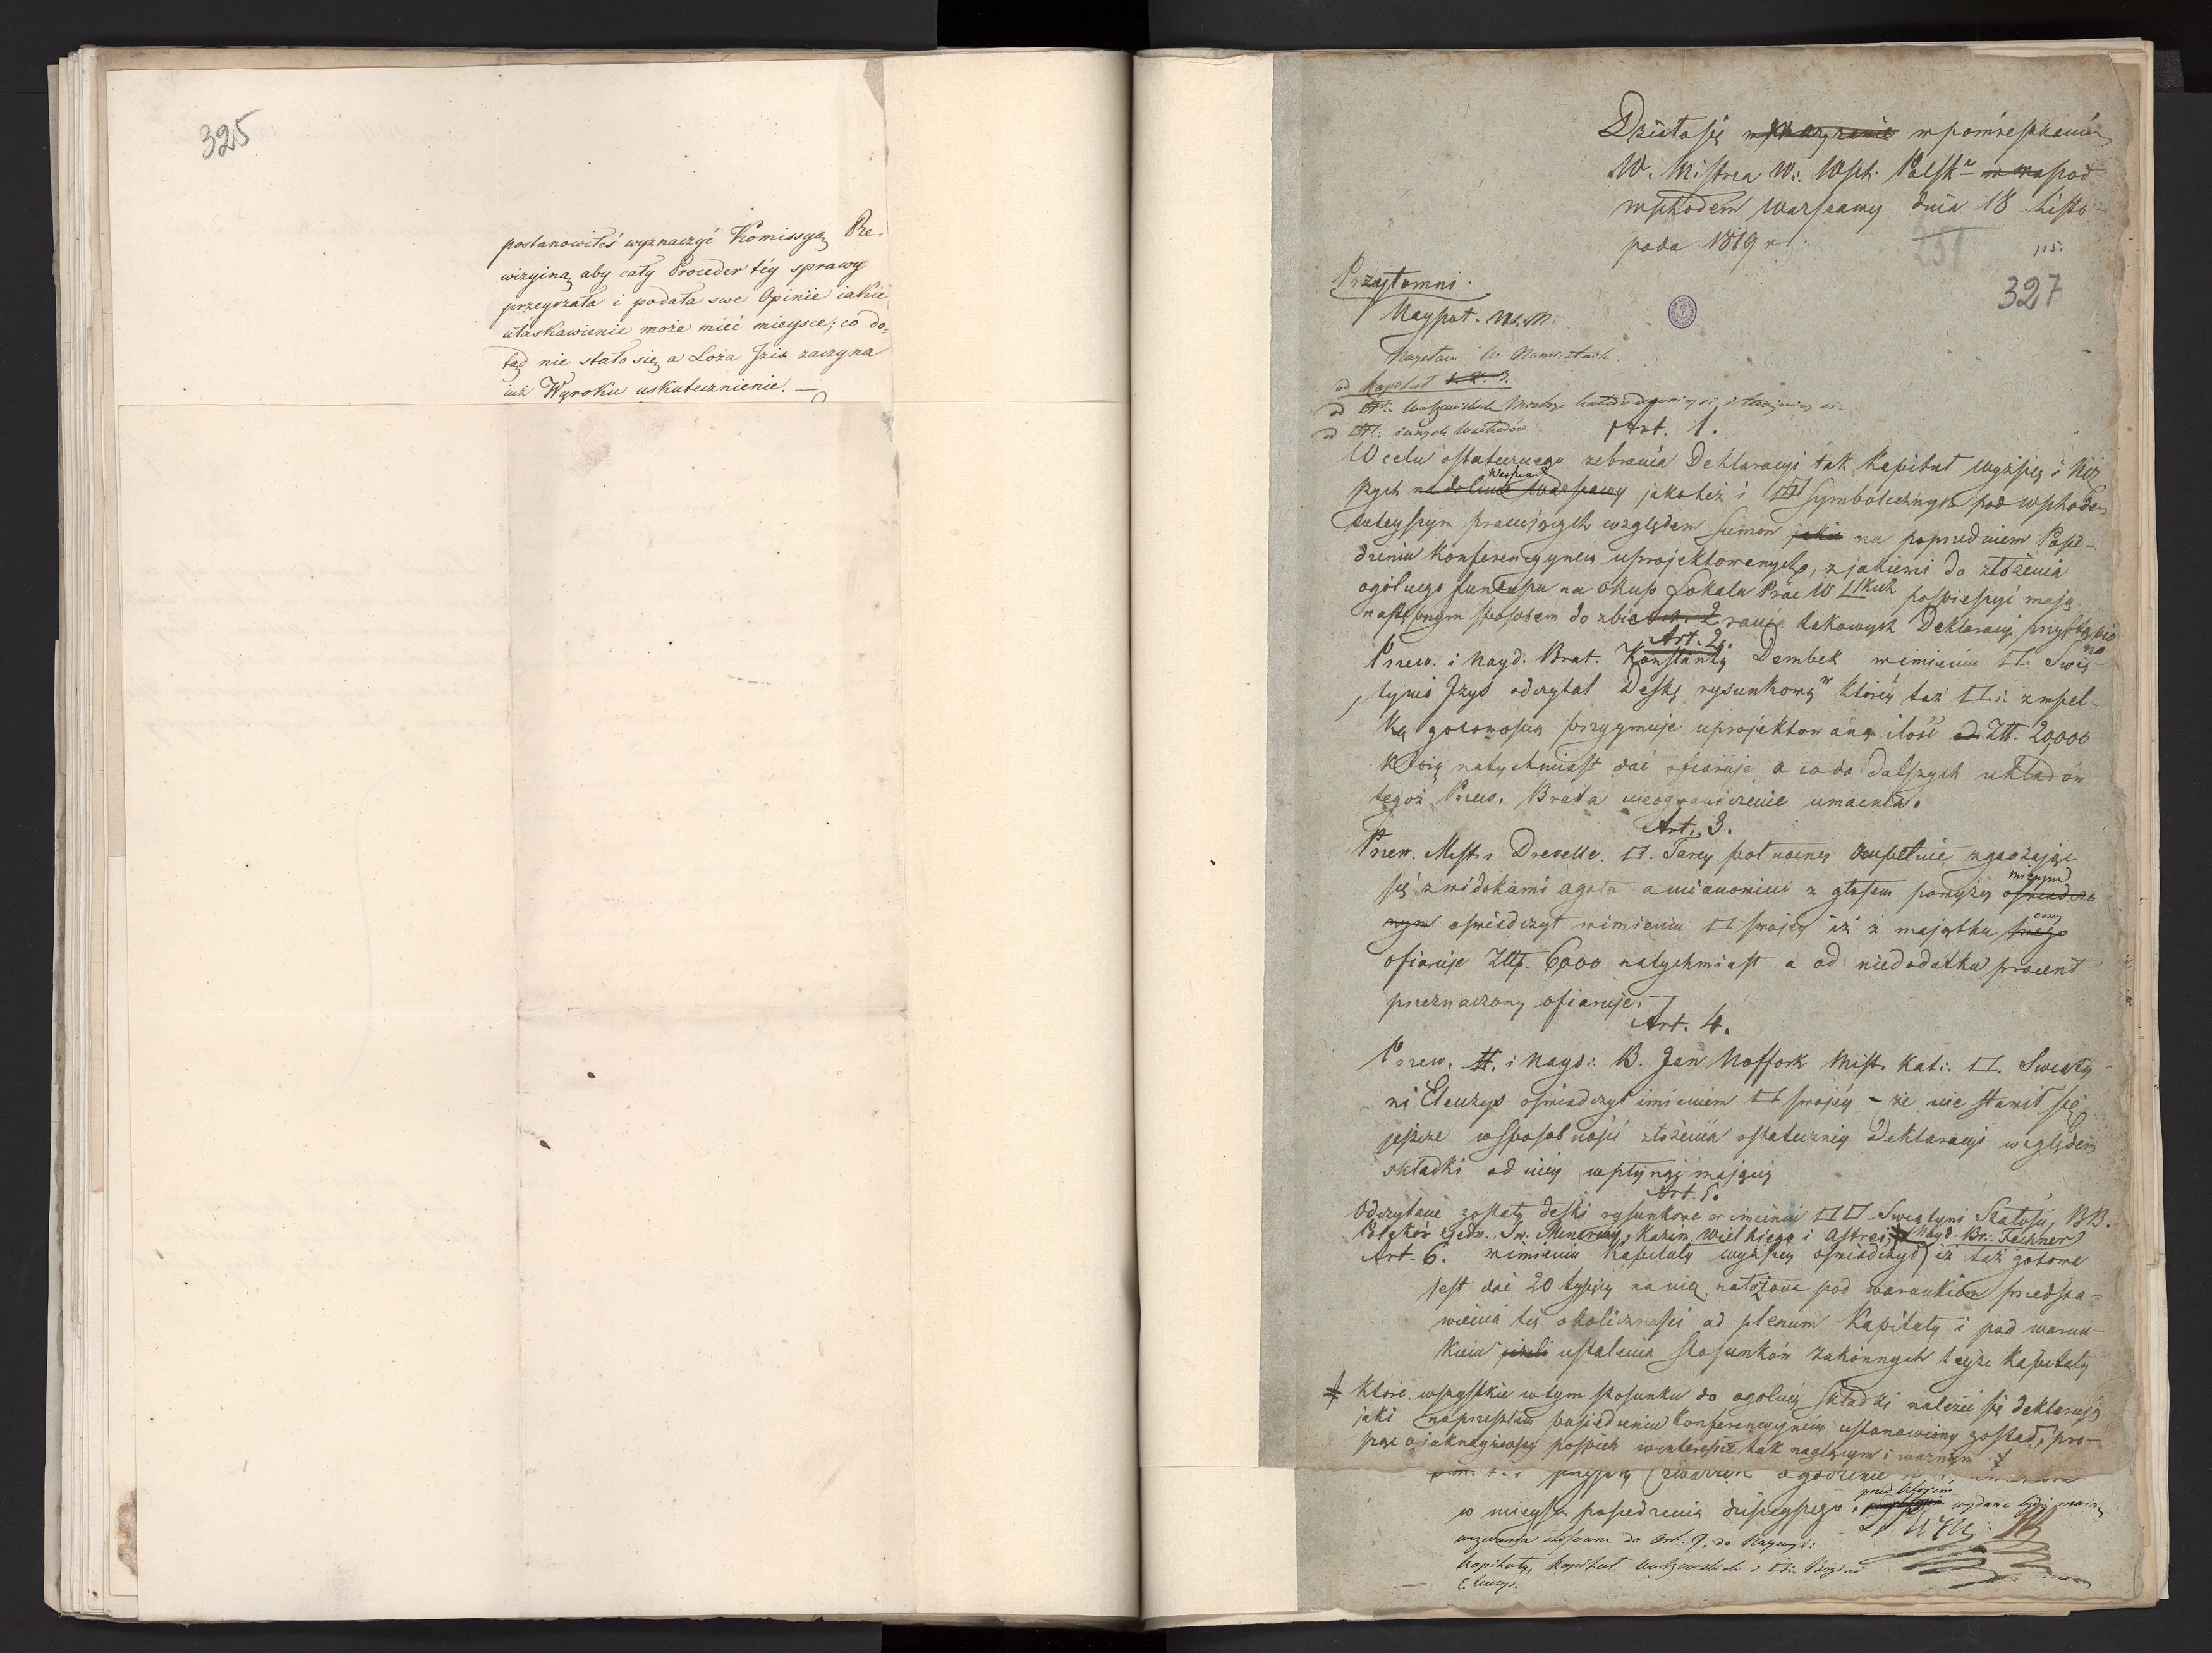 325
postanowiłeś wyznaczyć Komissyą Re-
wizyiną aby cały Proceder téy sprawy
przeyrzała i podała swe Opinie iakie
ułaskawienie może mieć mieysce; co do-
tąd nie stało się, a Loża Izis zaczyna
iuż Wyroku uskutecznienie. —
Działo się w pomieszkaniu
W. Mistrza W: Wsch: Polsk pod
wschodem Warszawy dnia 18 Listo-
pada 1819 r.
251
115.
327
Przytomni.
Naypot. W.M.
W Namiestnik
od Kapituł
od innych wschodów
Art. 1.
W celu ostatecznego zebrania Deklaracyi tak Kapituł wyższey i Niż
szych na dolinie Warszawy jakoteż i symbolicznych pod wschodem
tuteyszym pracujących względem summ jakie na poprzedniem Posie-
dzeniu Konferencyynem uprojektowanych, z jakiemi do złożenia
ogólnego funduszu na okup Lokalu Prac W pospieszyć mają
następnym sposobem do zbierania takowych Deklaracyi przystąpio
no
Art. 2.
Przew. i Nayd. Brat. Konstanty Dembek w imieniu □. Świą-
tyni Izys odczytał Deskę rysunkową w którey taż □: z wszel-
ką gotowością przyymuje uprojektowaną ilość Złł. 20,000
którą natychmiast dać ofiaruje, a co do dalszych układów
tegoż Przew. Brata nieograniczenie umacnia.
Art. 3.
Przew. Mistr. Drevelle. □. Tarczy północney zupełnie zgadzając
się z widokami ogółu a mianowicie z głosem powyżey
oświadczył w imieniu □ swojey iż z majątku swego
ofiaruje Złłp. 6000 natychmiast a od niedodatku procent
przeznaczony ofiaruje.
Art. 4.
Przew. i Nayd: B. Jan Noffok Mist. Kat: □. Świąty-
ni Eleuzys oświadczył imieniem □ swojey – że nie stawił się
jeszcze w sposobności złożenia ostateczney Deklaracyi względem
składki od niey wpłynąć mającey
Art. 5.
Odczytane zostały deski rysunkowe w imieniu □□ Świątyni Stałości, BB.
Polaków Zjedn. Sw. Minerwy, Kazim. Wielkiego i Astrei Nayd. Br: Fechner
Art. 6. w imieniu Kapituły wyższey oświadczył iż taż gotowa
jest dać 20 tysięcy na nią nałożone pod warunkiem przedsta-
wienia tey okoliczności ad plenum Kapituły i pod warun-
kiem jeżeli ustalenia stosunków zakonnych teyże Kapituły
które wszystkie w tym stosunku do ogólney składki należeć się deklarują
jaki na przeszłem posiedzeniu Konferencyynem ustanowiony został, pro-
sząc o jaknayżywszy pospiech w interessie tak naglącym i ważnym
przyszły czwartek o godzinie
w mieyscu posiedzenia dzisieyszego. przed którym wydane będą
wezwania stosowne do Art. 9. do Naywyż:
Kapituły, Kapituł Warszawskich i
Eleuzys.